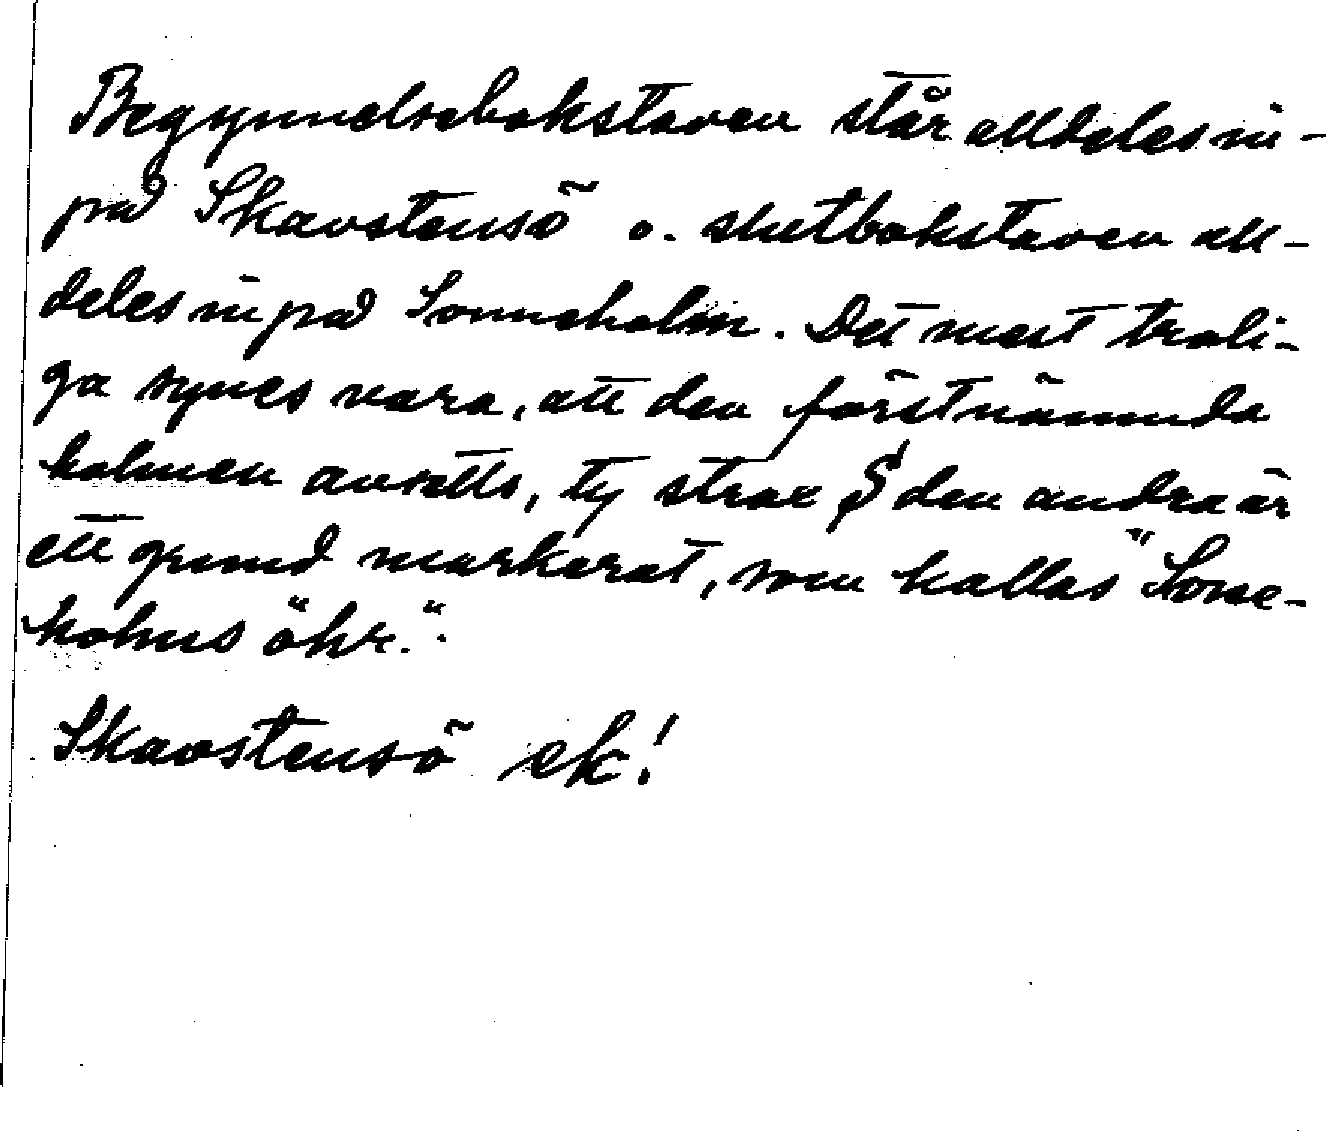 Begynnelsebokstaven står alldeles in-
på Skavstensö o. slutbokstaven all-
deles inpå Sonneholm. Det mest troli-
ga synes vara, att den förstnämnda
holmen avsetts, ty strax S den andra är
ett grund markerat, som kallas "Sone-
holms öhr.".
Skavstensö ek!